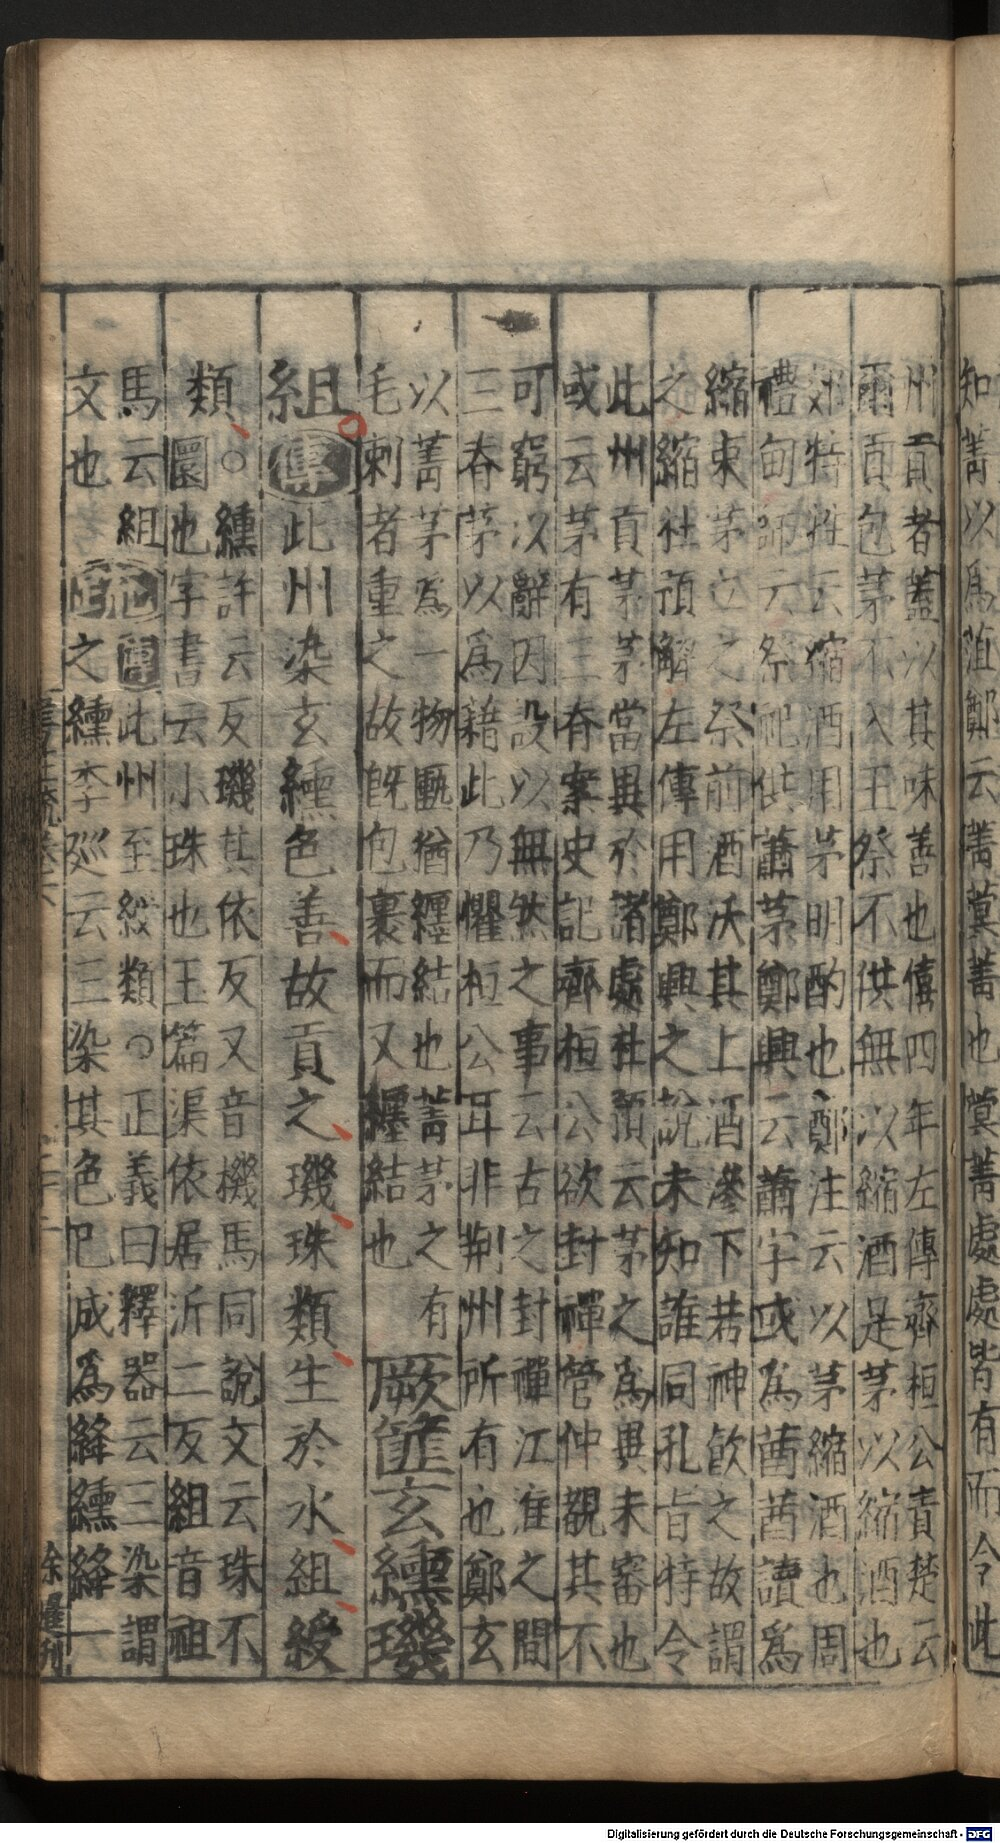 知菁以爲菹鄭云菁蓂菁也蓂菁處處皆有而令此
州貢者蓋以其味善也僖四年左傳齊桓公責楚云
爾貢包茅不入王祭不供無以縮酒是茅以縮酒也
郊特牲云縮酒用茅明酌也鄭注云以茅縮酒也周
禮甸師云祭祀供蕭茅鄭興云蕭字或爲莤莤讀爲
縮束茅立之祭前酒沃其上酒滲下若神飲之故謂
之縮社預解左傳用鄭興之說未知誰同孔旨特令
此州貢茅茅當異於諸處杜預云茅之爲異未審也
或云茅有三脊案史記齊桓公欲封禪管仲覩其不
可窮以辭因設以無然之事云古之封禪江淮之間
三脊茅以爲藉此乃懼桓公耳非荆州所有也鄭玄
以菁茅爲一物匭猶纒結也菁茅之有
毛刺者重之故旣包裹而又纒結也
厥篚玄纁璣
組傳此州染玄纁色善故貢之璣珠類生於水組綬
類○纁許云反璣其依反又音機馬同說文云珠不
圜也字書云小珠也玉篇渠依居沂二反組音祖
馬云組
文也
疏傳此州至綬類○正義曰釋器云三染謂
之纁李廵云三染其色已成爲絳纁絳一
書注疏卷六
二十二
余堅刋
Digitalisierung gefördert durch die Deutsche Forschungsgemeinschaft - DFG